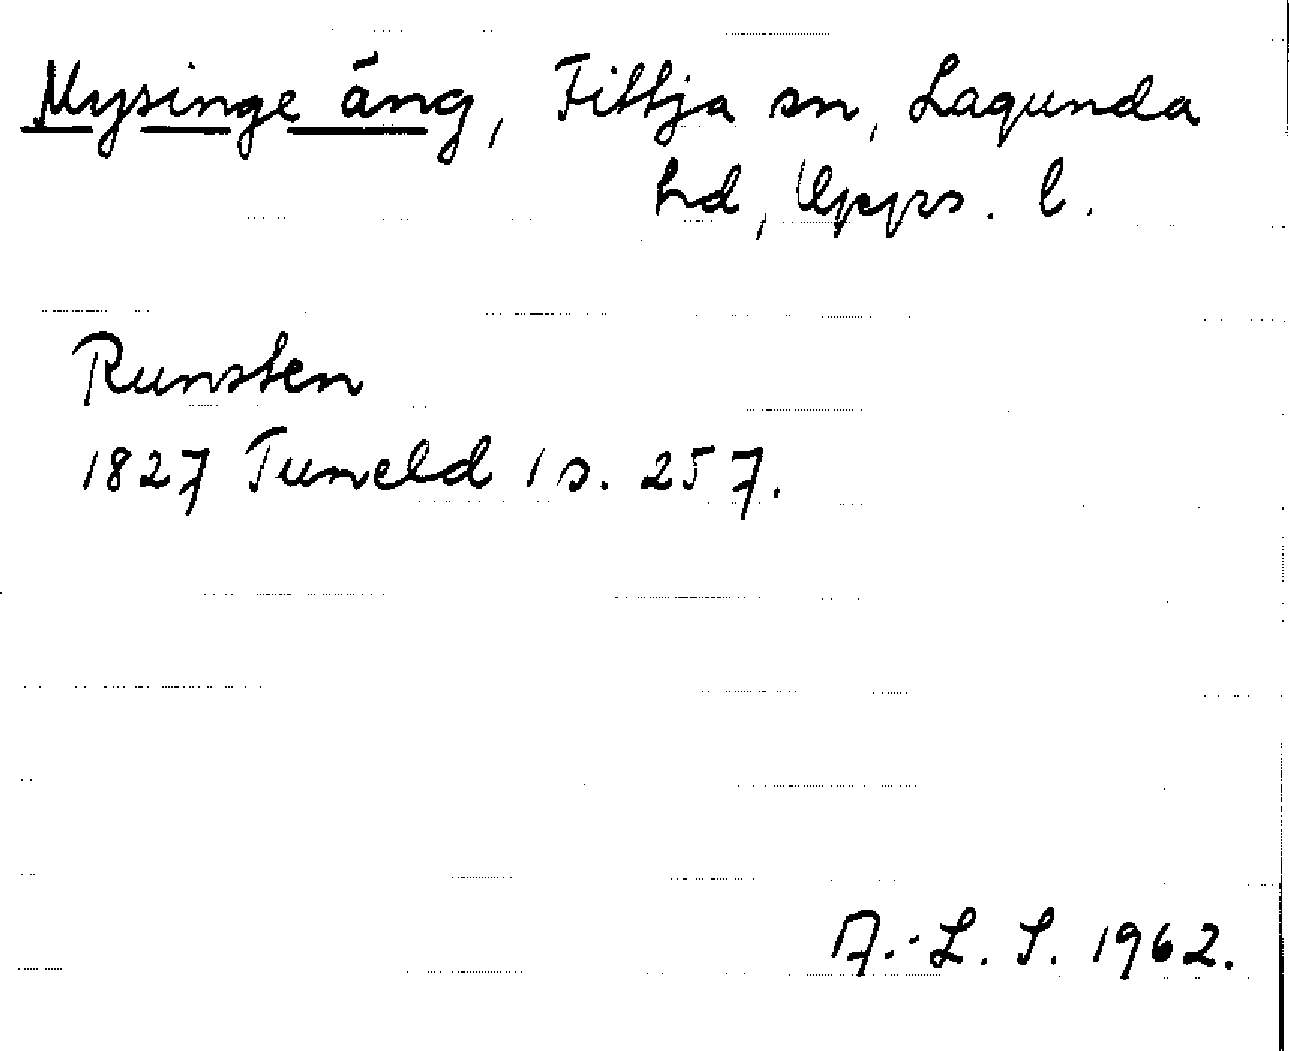 Mysinge äng, Fittja sn, Lagunda
hd, Upps. l.
Runsten
1827 Tuneld 1 s. 257.
A.-L. S. 1962.